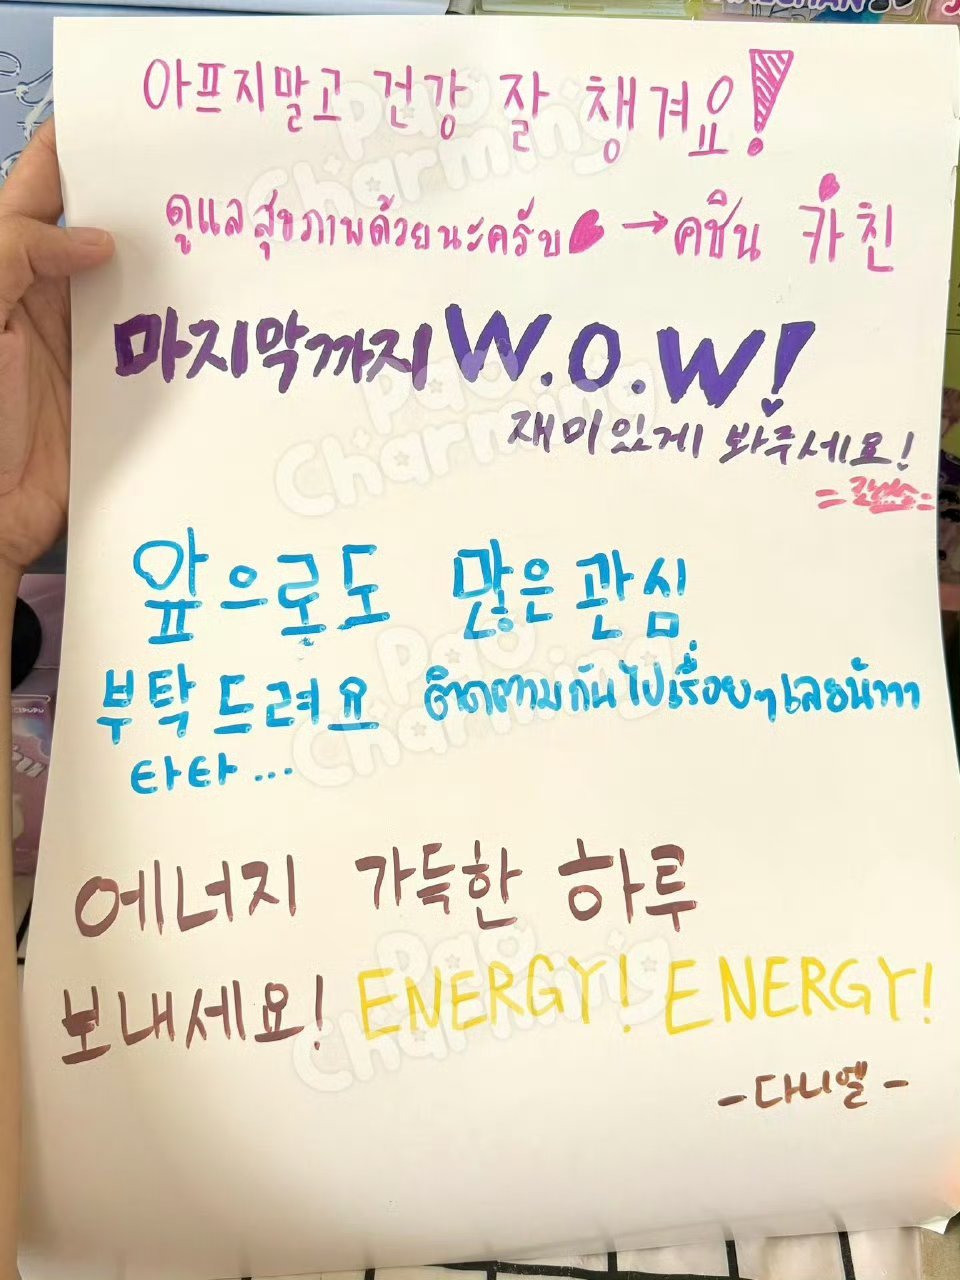 아프지말고 건강 잘 챙겨요!
ดูแลสุขภาพด้วยนะครับ → คชิน 카친
마지막까지 W.O.W!
재미있게 봐주세요!
앞으로도 많은 관심
부탁드려요 ติดตามกันไปเรื่อยๆเลยน้าาา
타타...
에너지 가득한 하루
보내세요! ENERGY! ENERGY!
-다니엘-
Pao Charming
Pao Charming
Pao Charming
Pao Charming